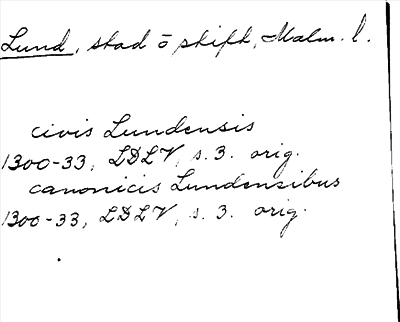 Lund, stad o skift, Malm. l.
civis Lundensis
1300-33, LDLV, s. 3. orig.
canonicis Lundensibus
1300-33, LDLV, s. 3. orig.